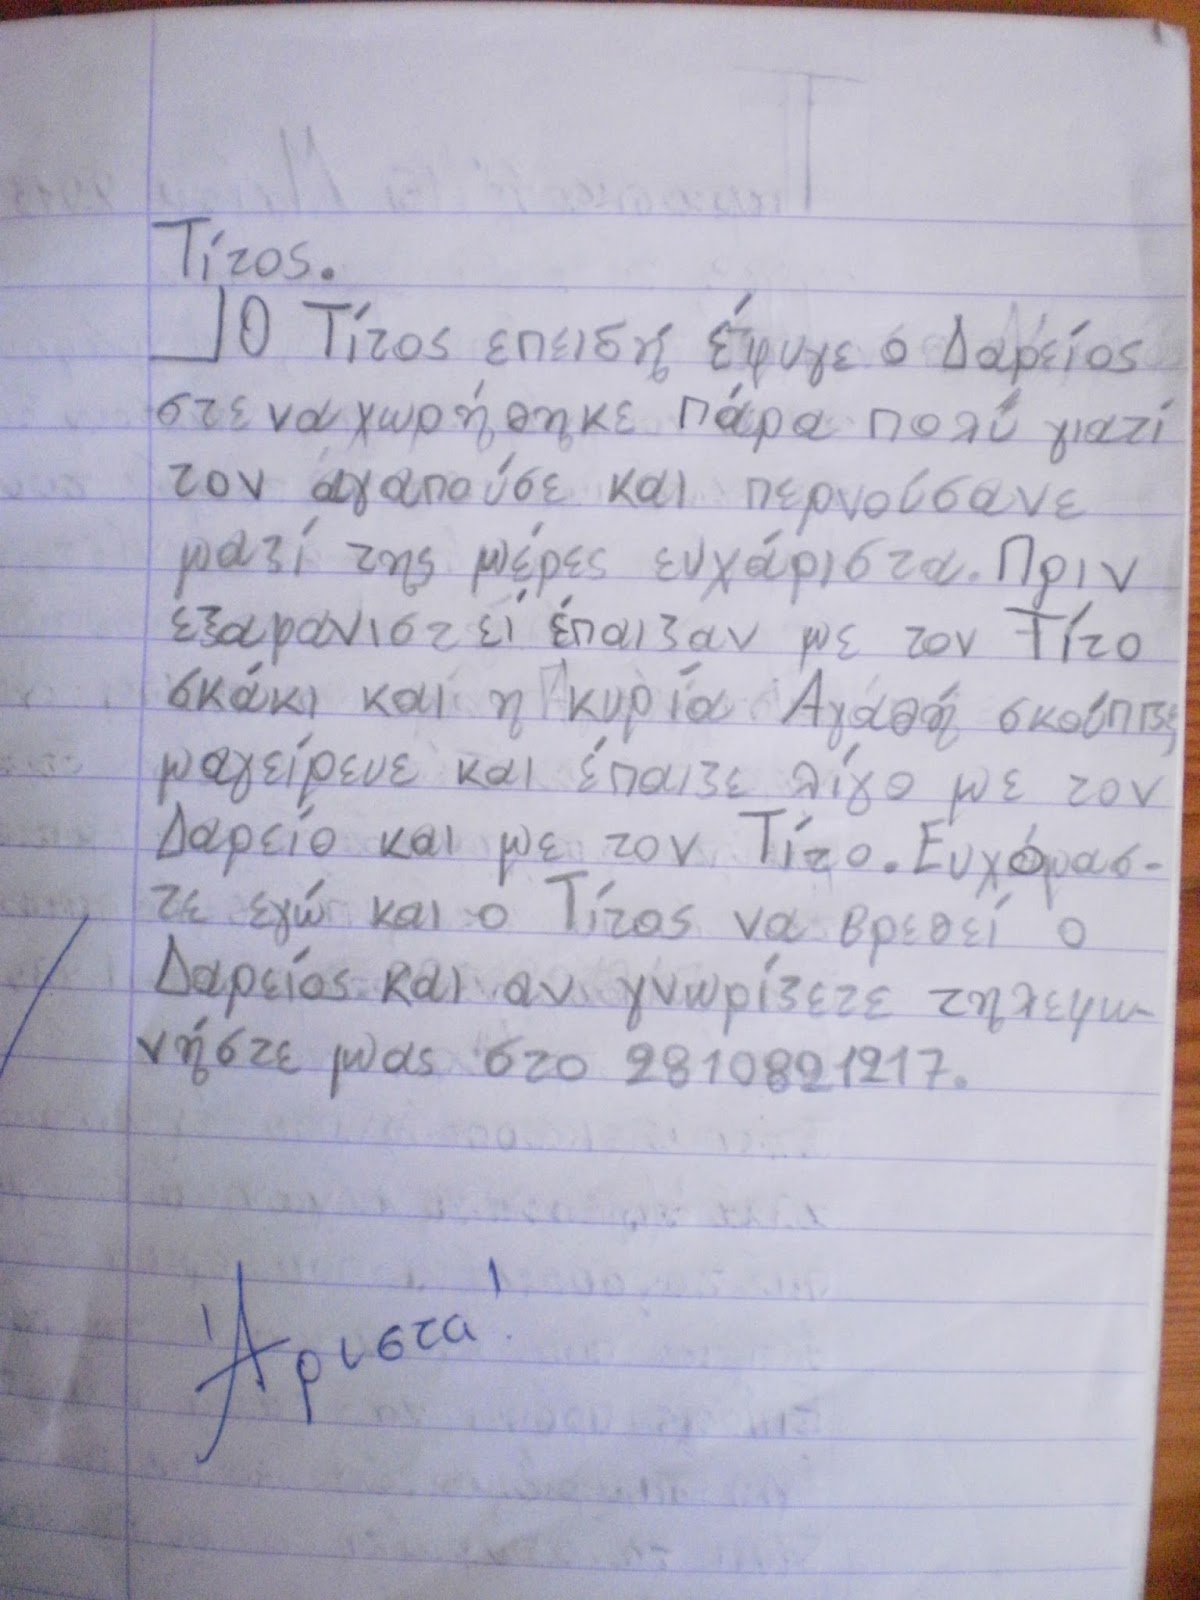 Τίτος.
Ο Τίτος επειδή έφυγε ο Δαρείος
στεναχωρήθηκε πάρα πολύ γιατί
τον αγαπούσε και περνούσανε
μαζί της μέρες ευχάριστα. Πριν
εξαφανιστεί έπαιζαν με τον Τίτο
σκάκι και η κυρία Αγαθή σκούπιζε,
μαγείρευε και έπαιζε λίγο με τον
Δαρείο και με τον Τίτο. Ευχόμασ-
τε εγώ και ο Τίτος να βρεθεί ο
Δαρείος και αν γνωρίζετε τηλεφω-
νήστε μας στο 2810821217.
Άριστα!